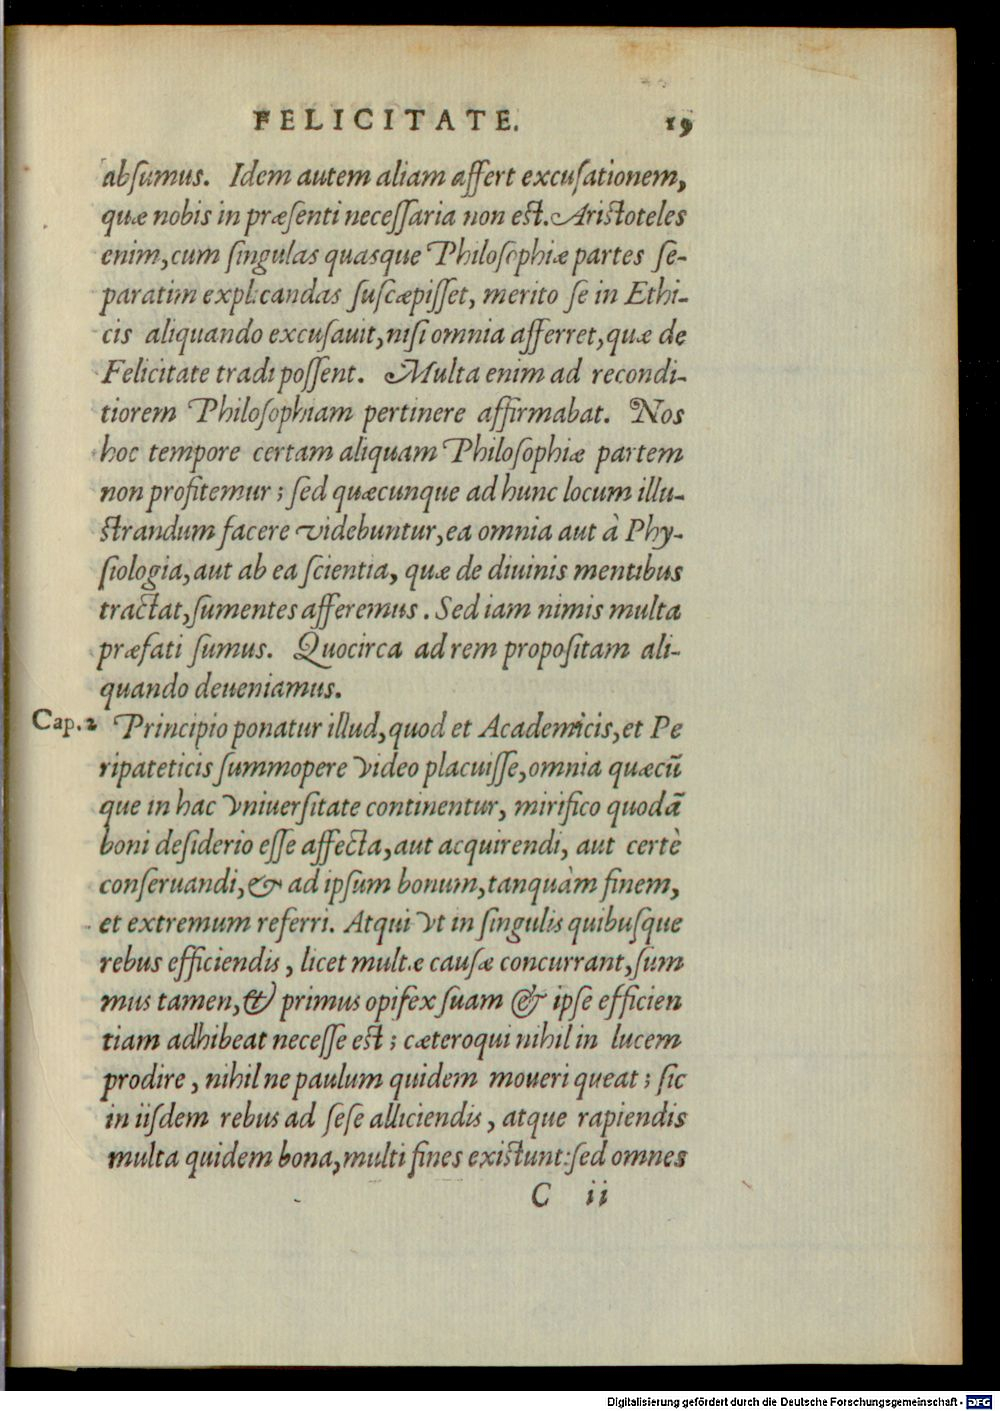 FELICITATE. 19
absumus. Idem autem aliam affert excusationem,
quæ nobis in præsenti necessaria non est. Aristoteles
enim, cum singulas quasque Philosophiæ partes se-
paratim explicandas suscæpisset, merito se in Ethi-
cis aliquando excusauit, nisi omnia afferret, quæ de
Felicitate tradi possent. Multa enim ad recondi-
tiorem Philosophiam pertinere affirmabat. Nos
hoc tempore certam aliquam Philosophiæ partem
non profitemur; sed quæcunque ad hunc locum illu-
strandum facere videbuntur, ea omnia aut à Phy-
siologia, aut ab ea scientia, quæ de diuinis mentibus
tractat, sumentes afferemus. Sed iam nimis multa
præfati sumus. Quocirca ad rem propositam ali-
quando deueniamus.
Cap. 2 Principio ponatur illud, quod et Academicis, et Pe
ripateticis summopere video placuisse, omnia quæcũ
que in hac vniuersitate continentur, mirifico quodã
boni desiderio esse affecta, aut acquirendi, aut certè
conseruandi, & ad ipsum bonum, tanquàm finem,
et extremum referri. Atqui vt in singulis quibusque
rebus efficiendis, licet multæ causæ concurrant, sum
mus tamen, & primus opifex suam & ipse efficien
tiam adhibeat necesse est; cæteroqui nihil in lucem
prodire, nihil ne paulum quidem moueri queat; sic
in iisdem rebus ad sese alliciendis, atque rapiendis
multa quidem bona, multi fines existunt: sed omnes
C ii
Digitalisierung gefördert durch die Deutsche Forschungsgemeinschaft - DFG